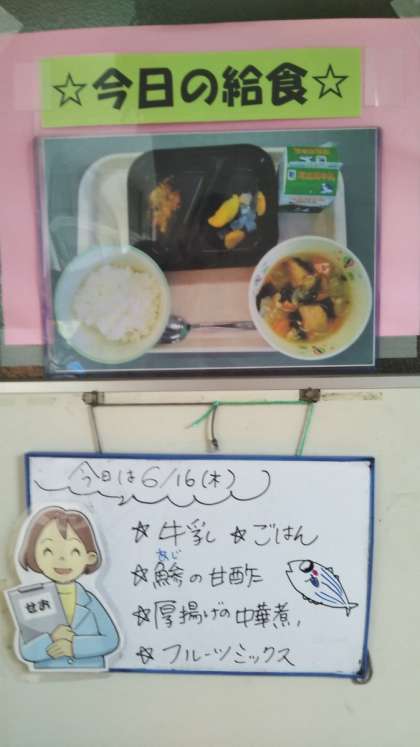 ☆今日の給食☆
今日は6/16(木)
☆牛乳 ☆ごはん
あじ
☆鯵の甘酢
☆厚揚げの中華煮
☆フルーツミックス
せお